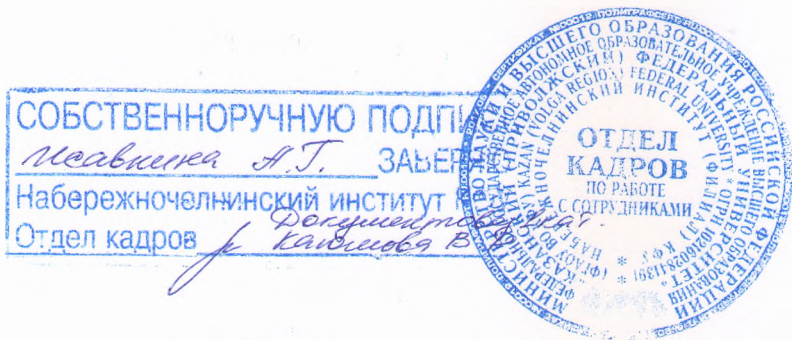 СОБСТВЕННОРУЧНУЮ ПОДПИ
Исавнина А.Г. ЗАВЕР
Набережночелнинский институт К
Документовед
Отдел кадров Каюмова В
МИНИСТЕРСТВО НАУКИ И ВЫСШЕГО ОБРАЗОВАНИЯ РОССИЙСКОЙ ФЕДЕРАЦИИ
ФЕДЕРАЛЬНОЕ ГОСУДАРСТВЕННОЕ АВТОНОМНОЕ ОБРАЗОВАТЕЛЬНОЕ УЧРЕЖДЕНИЕ ВЫСШЕГО ОБРАЗОВАНИЯ
"КАЗАНСКИЙ (ПРИВОЛЖСКИЙ) ФЕДЕРАЛЬНЫЙ УНИВЕРСИТЕТ"
(ФГАОУ ВО КФУ KAZAN (VOLGA REGION) FEDERAL UNIVERSITY * ОГРН 1021602841391 *
НАБЕРЕЖНОЧЕЛНИНСКИЙ ИНСТИТУТ (ФИЛИАЛ) КФУ *
ОТДЕЛ
КАДРОВ
ПО РАБОТЕ
С СОТРУДНИКАМИ